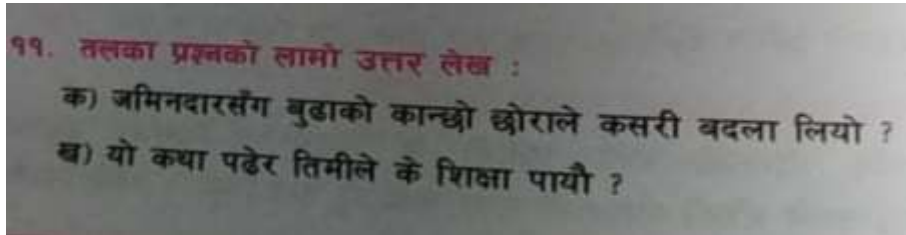 ११. तलका प्रश्नको लामो उत्तर लेख :
क) जमिनदारसँग बुढाको कान्छो छोराले कसरी बदला लियो ?
ख) यो कथा पढेर तिमीले के शिक्षा पायौ ?